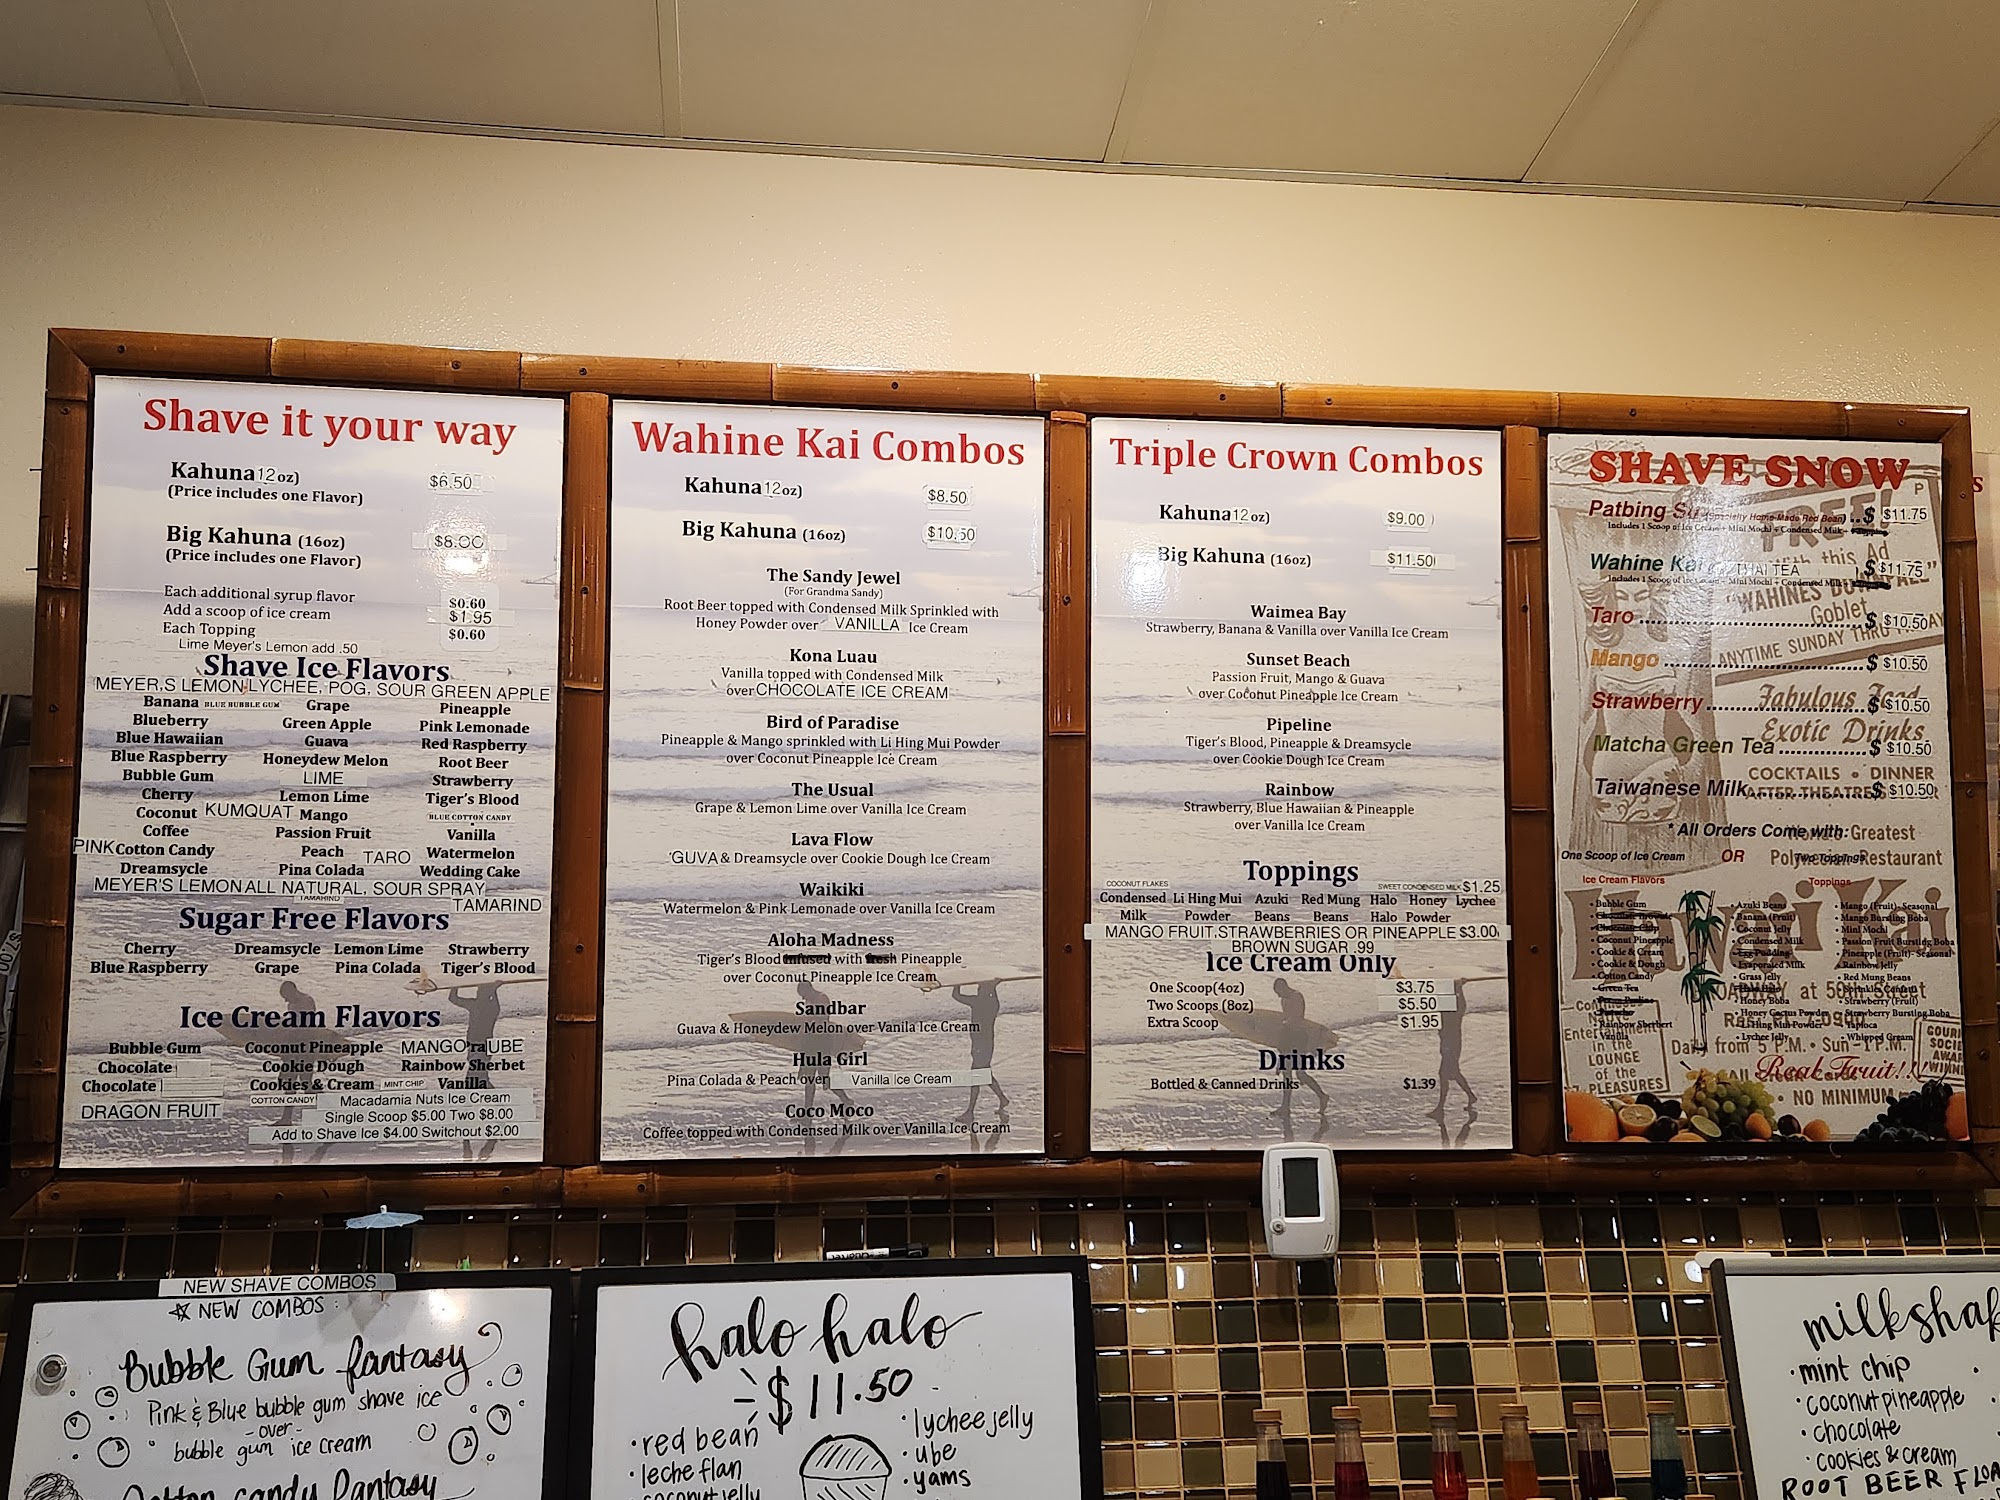 Shave it your way
Kahuna 12 oz) $6.50
(Price includes one Flavor)
Big Kahuna (16oz) $8.00
(Price includes one Flavor)
Each additional syrup flavor $0.60
Add a scoop of ice cream $1.95
Each Topping $0.60
Lime Meyer's Lemon add .50
Shave Ice Flavors
MEYER,S LEMON LYCHEE, POG, SOUR GREEN APPLE
Banana BLUE BUBBLE GUM Grape Pineapple
Blueberry Green Apple Pink Lemonade
Blue Hawaiian Guava Red Raspberry
Blue Raspberry Honeydew Melon Root Beer
Bubble Gum LIME Strawberry
Cherry Lemon Lime Tiger's Blood
Coconut KUMQUAT Mango BLUE COTTON CANDY
Coffee Passion Fruit Vanilla
PINK Cotton Candy Peach TARO Watermelon
Dreamsycle Pina Colada Wedding Cake
MEYER'S LEMON ALL NATURAL, SOUR SPRAY
TAMARIND TAMARIND
Sugar Free Flavors
Cherry Dreamsycle Lemon Lime Strawberry
Blue Raspberry Grape Pina Colada Tiger's Blood
Ice Cream Flavors
Bubble Gum Coconut Pineapple MANGO UBE
Chocolate Cookie Dough Rainbow Sherbet
Chocolate Cookies & Cream MINT CHIP Vanilla
COTTON CANDY Macadamia Nuts Ice Cream
DRAGON FRUIT Single Scoop $5.00 Two $8.00
Add to Shave Ice $4.00 Switchout $2.00
Wahine Kai Combos
Kahuna 12 oz) $8.50
Big Kahuna (16oz) $10.50
The Sandy Jewel
(For Grandma Sandy)
Root Beer topped with Condensed Milk Sprinkled with
Honey Powder over VANILLA Ice Cream
Kona Luau
Vanilla topped with Condensed Milk
over CHOCOLATE ICE CREAM
Bird of Paradise
Pineapple & Mango sprinkled with Li Hing Mui Powder
over Coconut Pineapple Ice Cream
The Usual
Grape & Lemon Lime over Vanilla Ice Cream
Lava Flow
'GUVA & Dreamsycle over Cookie Dough Ice Cream
Waikiki
Watermelon & Pink Lemonade over Vanilla Ice Cream
Aloha Madness
Tiger's Blood infused with fresh Pineapple
over Coconut Pineapple Ice Cream
Sandbar
Guava & Honeydew Melon over Vanila Ice Cream
Hula Girl
Pina Colada & Peach over Vanilla Ice Cream
Coco Moco
Coffee topped with Condensed Milk over Vanilla Ice Cream
Triple Crown Combos
Kahuna 12 oz) $9.00
Big Kahuna (16oz) $11.50
Waimea Bay
Strawberry, Banana & Vanilla over Vanilla Ice Cream
Sunset Beach
Passion Fruit, Mango & Guava
over Coconut Pineapple Ice Cream
Pipeline
Tiger's Blood, Pineapple & Dreamsycle
over Cookie Dough Ice Cream
Rainbow
Strawberry, Blue Hawaiian & Pineapple
over Vanilla Ice Cream
Toppings
COCONUT FLAKES SWEET CONDENSED MILK $1.25
Condensed Li Hing Mui Azuki Red Mung Halo Honey Lychee
Milk Powder Beans Beans Halo Powder
MANGO FRUIT.STRAWBERRIES OR PINEAPPLE $3.00
BROWN SUGAR .99
Ice Cream Only
One Scoop(4oz) $3.75
Two Scoops (8oz) $5.50
Extra Scoop $1.95
Drinks
Bottled & Canned Drinks $1.39
SHAVE SNOW
Patbing (Specialty Home-Made Red Bean) $11.75
Includes 1 Scoop of Ice Cream + Mini Mochi + Condensed Milk
Wahine Kai THAI TEA $11.75
Includes 1 Scoop of Ice Cream + Mini Mochi + Condensed Milk
Taro $10.50
Mango $10.50
Strawberry $10.50
Matcha Green Tea $10.50
Taiwanese Milk $10.50
FREE!
with this Ad
Goblet
ANYTIME SUNDAY THRU
Fabulous Food
Exotic Drinks
COCKTAILS • DINNER
AFTER-THEATRE
* All Orders Come with: Greatest
One Scoop of Ice Cream OR Two Toppings
Polynesian Restaurant
Ice Cream Flavors Toppings
• Bubble Gum • Azuki Beans • Mango (Fruit)- Seasonal
• Chocolate Brownie • Banana (Fruit) • Mango Bursting Boba
• Chocolate Chip • Coconut Jelly • Mini Mochi
• Coconut Pineapple • Condensed Milk • Passion Fruit Bursting Boba
• Cookie & Cream • Egg Pudding • Pineapple (Fruit)- Seasonal
• Cookie & Dough • Evaporated Milk • Rainbow Jelly
• Cotton Candy • Grass Jelly • Red Mung Beans
• Green Tea • Halo Halo • Sprinkles Confetti
• Honey Boba • Strawberry (Fruit)
• Honey Cactus Powder • Strawberry Bursting Boba
• Rainbow Sherbert • Li Hing Mui Powder • Tapioca
• Vanilla • Lychee Jelly • Whipped Cream
Daily from 5 P.M. • Sun - 1 P.M.
in the
LOUNGE
of the
PLEASURES
Real Fruit!!
• NO MINIMUM
NEW SHAVE COMBOS
☆ NEW COMBOS:
Bubble Gum fantasy
Pink & Blue bubble gum shave ice
- over -
bubble gum ice cream
Cotton candy fantasy
halo halo
$11.50
• red bean
• leche flan
coconut jelly
• lychee jelly
• ube
• yams
• mint chip
• coconut pineapple
• chocolate
• cookies & cream
ROOT BEER